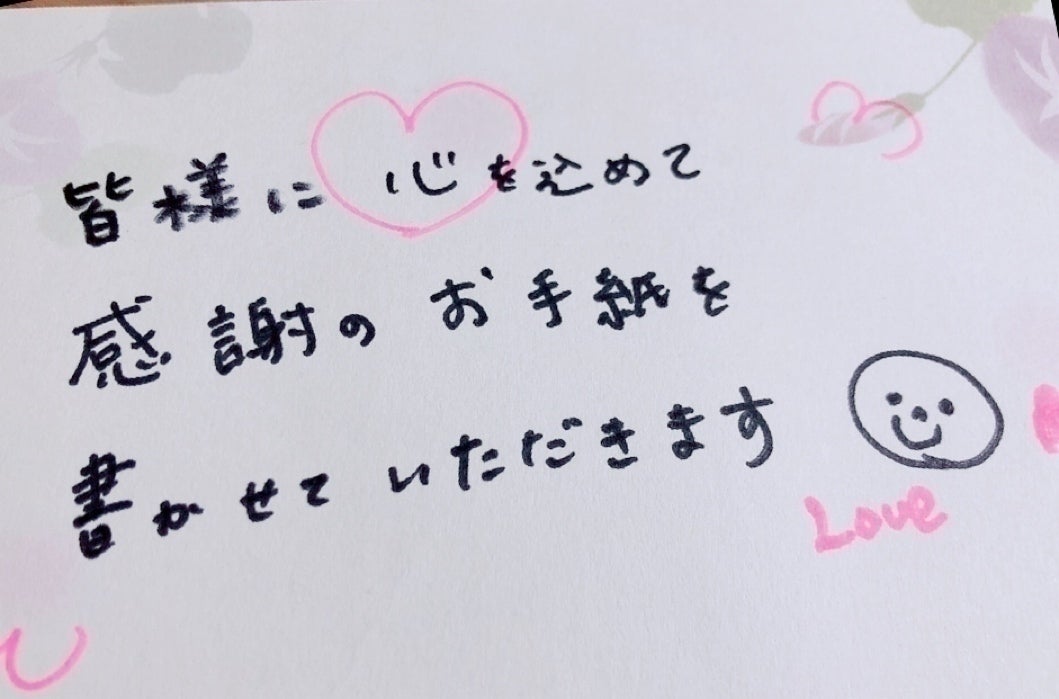 皆様に心を込めて
感謝のお手紙を
書かせていただきます
Love